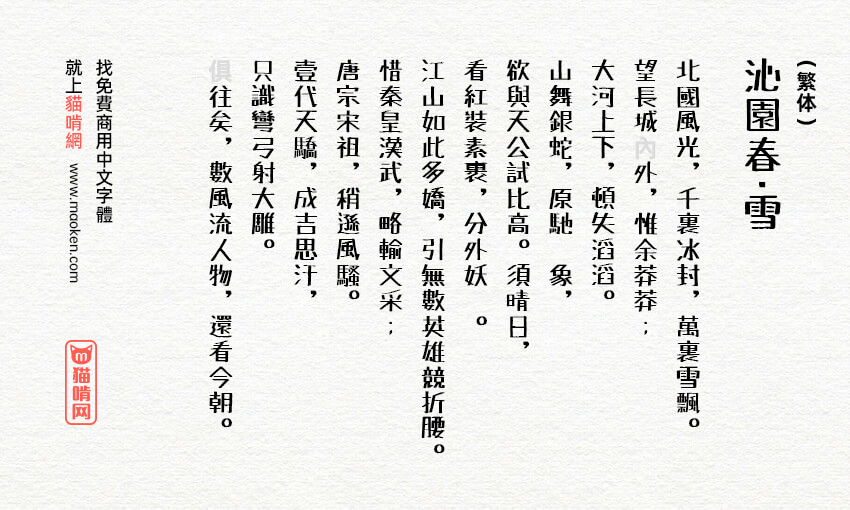 (繁体)
沁園春·雪
北國風光，千裏冰封，萬裏雪飄。
望長城內外，惟余莽莽；
大河上下，頓失滔滔。
山舞銀蛇，原馳 象，
欲與天公試比高。須晴日，
看紅裝素裹，分外妖 。
江山如此多嬌，引無數英雄競折腰。
惜秦皇漢武，略輸文采；
唐宗宋祖，稍遜風騷。
壹代天驕，成吉思汗，
只識彎弓射大雕。
俱往矣，數風流人物，還看今朝。
找免費商用中文字體
就上貓啃網 www.maoken.com
m
猫啃网